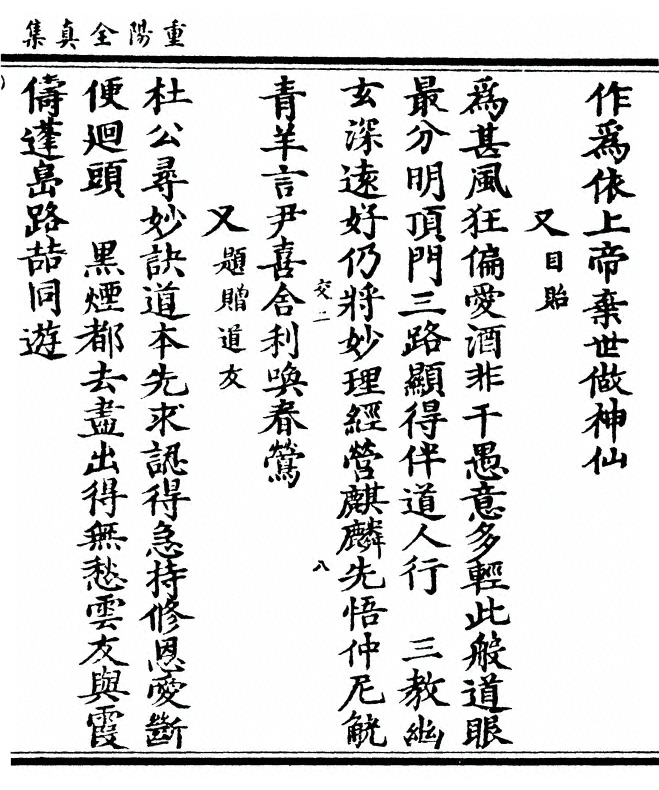 重陽全真集
作為依上帝棄世做神仙
又目貽
為甚風狂偏愛酒非干愚意多輕此般道眼
最分明頂門三路顯得伴道人行　三教幽
玄深遠好仍將妙理經營麒麟先悟仲尼觥
交二
八
青羊言尹喜舍利喚春鶯
又題贈道友
杜公尋妙訣道本先求認得急持修恩愛斷
便迴頭　黑煙都去盡出得無愁雲友與霞
儔蓬島路喆同遊